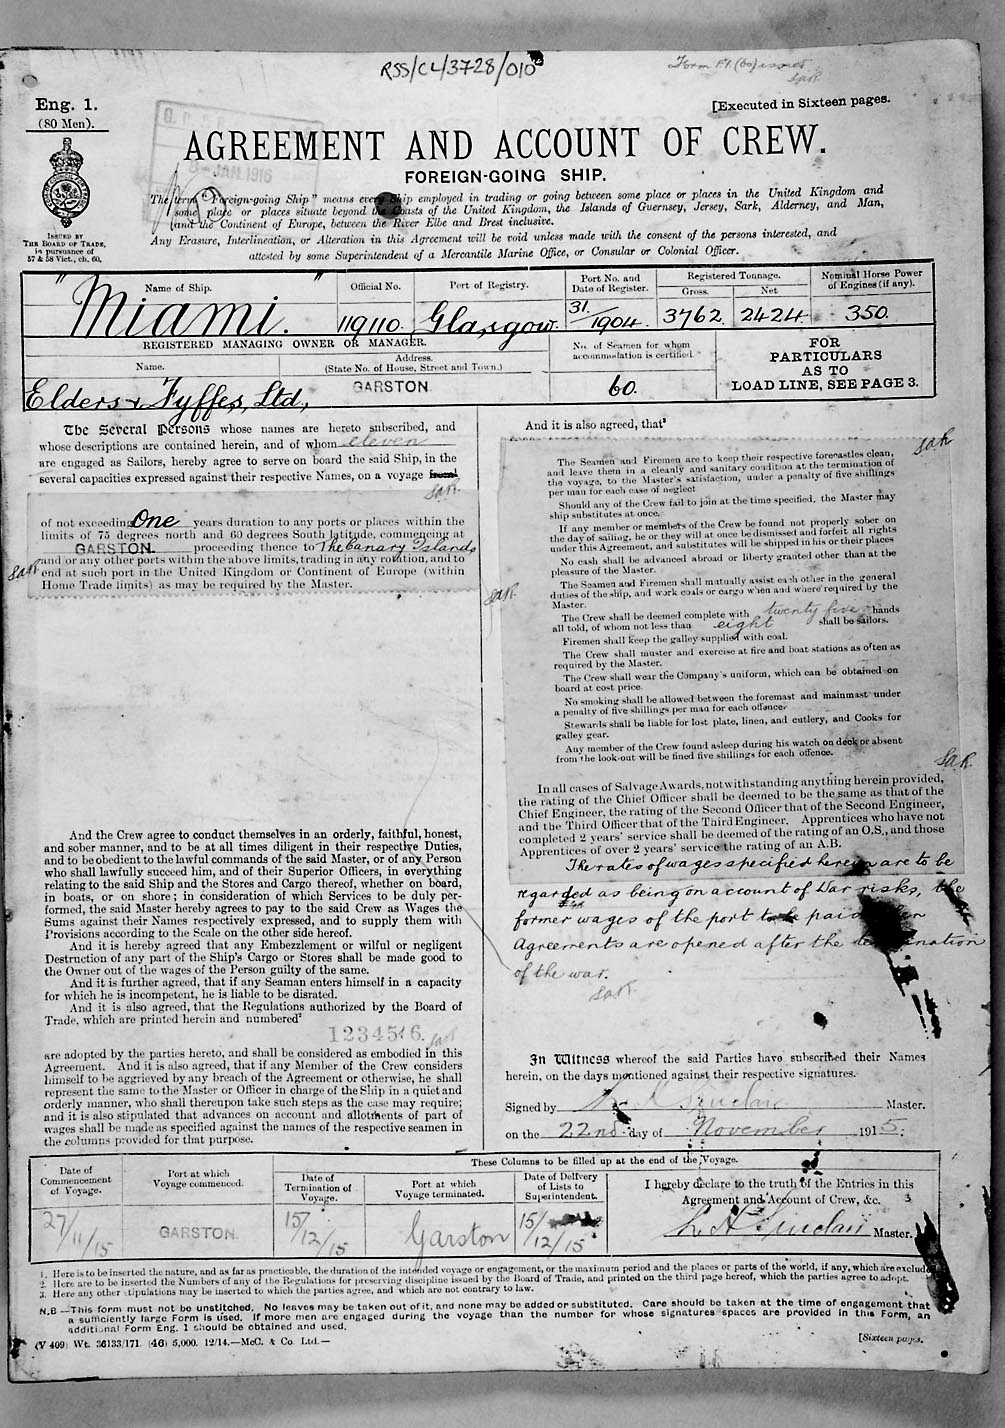 RSS/CL/3728/010
Form F1 (60) issued
SAR
Eng. 1.
(80 Men).
[Executed in Sixteen pages.
JAN. 1916
AGREEMENT AND ACCOUNT OF CREW.
FOREIGN-GOING SHIP.
The term "Foreign-going Ship" means every Ship employed in trading or going between some place or places in the United Kingdom and
some place or places situate beyond the Coasts of the United Kingdom, the Islands of Guernsey, Jersey, Sark, Alderney, and Man,
and the Continent of Europe, between the River Elbe and Brest inclusive.
Any Erasure, Interlineation, or Alteration in this Agreement will be void unless made with the consent of the persons interested, and
attested by some Superintendent of a Mercantile Marine Office, or Consular or Colonial Officer.
ISSUED BY
THE BOARD OF TRADE,
in pursuance of
57 & 58 Vict., ch. 60.
Name of Ship.
Official No.
Port of Registry.
Port No. and
Date of Register.
Registered Tonnage.
Gross.
Net
Nominal Horse Power
of Engines (if any).
"Miami."
119110.
Glasgow.
31/1904.
3762
2424
350
REGISTERED MANAGING OWNER OR MANAGER.
Name.
Address.
(State No. of House, Street and Town.)
No. of Seamen for whom
accommodation is certified
FOR
PARTICULARS
AS TO
LOAD LINE, SEE PAGE 3.
Elders & Fyffes, Ltd,
GARSTON
60.
The Several Persons whose names are hereto subscribed, and
whose descriptions are contained herein, and of whom eleven
are engaged as Sailors, hereby agree to serve on board the said Ship, in the
several capacities expressed against their respective Names, on a voyage from¹
SAR.
of not exceeding One years duration to any ports or places within the
limits of 75 degrees north and 60 degrees South latitude, commencing at
GARSTON. proceeding thence to The Canary Islands
and/or any other ports within the above limits, trading in any rotation, and to
end at such port in the United Kingdom or Continent of Europe (within
Home Trade limits) as may be required by the Master.
SAR
SAR.
And the Crew agree to conduct themselves in an orderly, faithful, honest,
and sober manner, and to be at all times diligent in their respective Duties,
and to be obedient to the lawful commands of the said Master, or of any Person
who shall lawfully succeed him, and of their Superior Officers, in everything
relating to the said Ship and the Stores and Cargo thereof, whether on board,
in boats, or on shore; in consideration of which Services to be duly per-
formed, the said Master hereby agrees to pay to the said Crew as Wages the
Sums against their Names respectively expressed, and to supply them with
Provisions according to the Scale on the other side hereof.
And it is hereby agreed that any Embezzlement or wilful or negligent
Destruction of any part of the Ship's Cargo or Stores shall be made good to
the Owner out of the wages of the Person guilty of the same.
And it is further agreed, that if any Seaman enters himself in a capacity
for which he is incompetent, he is liable to be disrated.
And it is also agreed, that the Regulations authorized by the Board of
Trade, which are printed herein and numbered²
SAR
are adopted by the parties hereto, and shall be considered as embodied in this
Agreement. And it is also agreed, that if any Member of the Crew considers
himself to be aggrieved by any breach of the Agreement or otherwise, he shall
represent the same to the Master or Officer in charge of the Ship in a quiet and
orderly manner, who shall thereupon take such steps as the case may require;
and it is also stipulated that advances on account and allotments of part of
wages shall be made as specified against the names of the respective seamen in
the columns provided for that purpose.
And it is also agreed, that³
SAR
The Seamen and Firemen are to keep their respective forecastles clean,
and leave them in a cleanly and sanitary condition at the termination of
the voyage, to the Master's satisfaction, under a penalty of five shillings
per man for each case of neglect
Should any of the Crew fail to join at the time specified, the Master may
ship substitutes at once.
If any member or members of the Crew be found not properly sober on
the day of sailing, he or they will at once be dismissed and forfeit all rights
under this Agreement, and substitutes will be shipped in his or their places
No cash shall be advanced abroad or liberty granted other than at the
pleasure of the Master.
The Seamen and Firemen shall mutually assist each other in the general
duties of the ship, and work coals or cargo when and where required by the
Master.
The Crew shall be deemed complete with twenty five hands
all told, of whom not less than eight shall be sailors.
Firemen shall keep the galley supplied with coal.
The Crew shall muster and exercise at fire and boat stations as often as
required by the Master.
The Crew shall wear the Company's uniform, which can be obtained on
board at cost price
No smoking shall be allowed between the foremast and mainmast under
a penalty of five shillings per man for each offence.
Stewards shall be liable for lost plate, linen, and cutlery, and Cooks for
galley gear.
Any member of the Crew found asleep during his watch on deck or absent
from the look-out will be fined five shillings for each offence.
SAR.
In all cases of Salvage Awards, notwithstanding anything herein provided,
the rating of the Chief Officer shall be deemed to be the same as that of the
Chief Engineer, the rating of the Second Officer that of the Second Engineer,
and the Third Officer that of the Third Engineer. Apprentices who have not
completed 2 years' service shall be deemed of the rating of an O.S., and those
Apprentices of over 2 years' service the rating of an A.B.
The rates of wages specified herein are to be
regarded as being on account of War risks, the
former wages of the port to be paid when
Agreements are opened after the termination
of the war.
SAR
In Witness whereof the said Parties have subscribed their Names
herein, on the days mentioned against their respective signatures.
Signed by Sinclair Master.
on the 22nd day of November 1915.
Date of
Commencement
of Voyage.
Port at which
Voyage commenced.
These Columns to be filled up at the end of the Voyage.
Date of
Termination of
Voyage.
Port at which
Voyage terminated.
Date of Delivery
of Lists to
Superintendent.
I hereby declare to the truth of the Entries in this
Agreement and Account of Crew, &c.
27/11/15
GARSTON.
15/12/15
Garston
15/12/15
Sinclair Master.
1. Here is to be inserted the nature, and as far as practicable, the duration of the intended voyage or engagement, or the maximum period and the places or parts of the world, if any, which are excluded.
2. Here are to be inserted the Numbers of any of the Regulations for preserving discipline issued by the Board of Trade, and printed on the third page hereof, which the parties agree to adopt.
3. Here any other stipulations may be inserted to which the parties agree, and which are not contrary to law.
N.B.—This form must not be unstitched. No leaves may be taken out of it, and none may be added or substituted. Care should be taken at the time of engagement that
a sufficiently large Form is used. If more men are engaged during the voyage than the number for whose signatures spaces are provided in this Form, an
additional Form Eng. 1 should be obtained and used.
(V 409) Wt. 36133/171. (46) 5,000. 12/14.—McC. & Co. Ltd.—
[Sixteen pages.